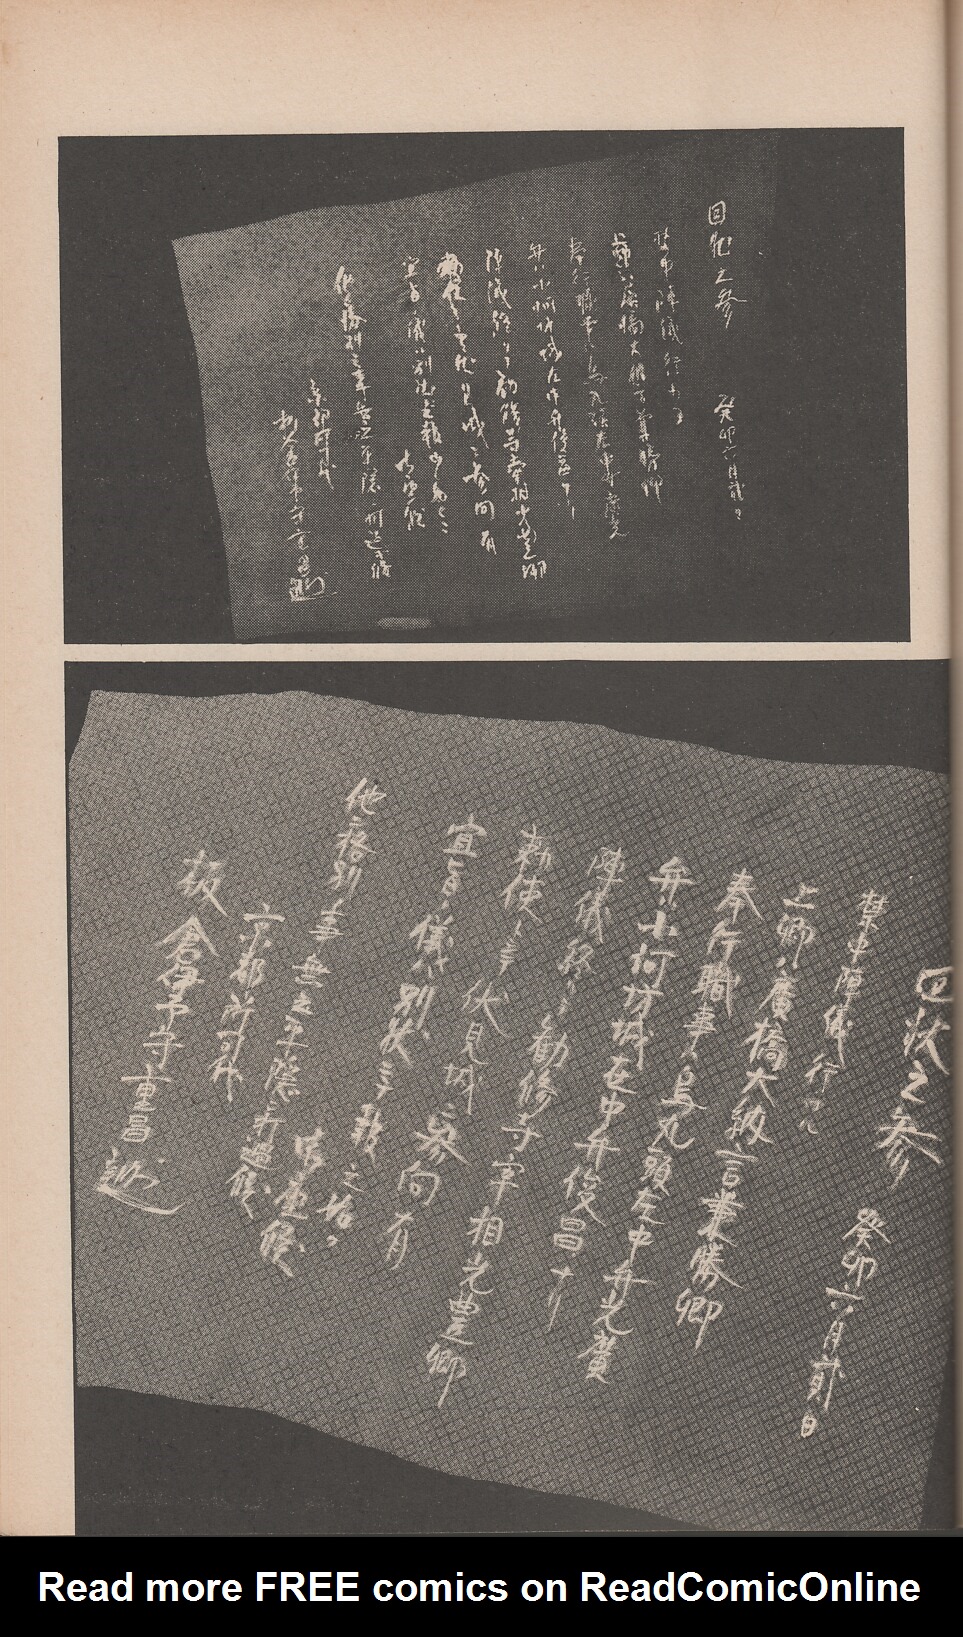 回状之参
癸卯六月貳日
禁中陣儀行ワル
上卿ハ廣橋大納言兼勝卿
奉行職事ハ烏丸頭左中弁光廣
弁ハ小河坊城左中弁俊昌ナリ
陣儀終リテ勧修寺宰相光豊卿
勅使トシテ伏見城ニ参向有
宣旨ノ儀ハ別状ニテ
他ニ格別之事無之平穏ニ
京都所司代
板倉伊予守重昌
回状之参
癸卯六月貳日
禁中陣儀行ワル
上卿ハ廣橋大納言兼勝卿
奉行職事ハ烏丸頭左中弁光廣
弁ハ小河坊城左中弁俊昌ナリ
陣儀終リテ勧修寺宰相光豊卿
勅使トシテ伏見城ニ参向有
宣旨ノ儀ハ別状ニテ
他ニ格別之事無之平穏ニ
京都所司代
板倉伊予守重昌
Read more FREE comics on ReadComicOnline